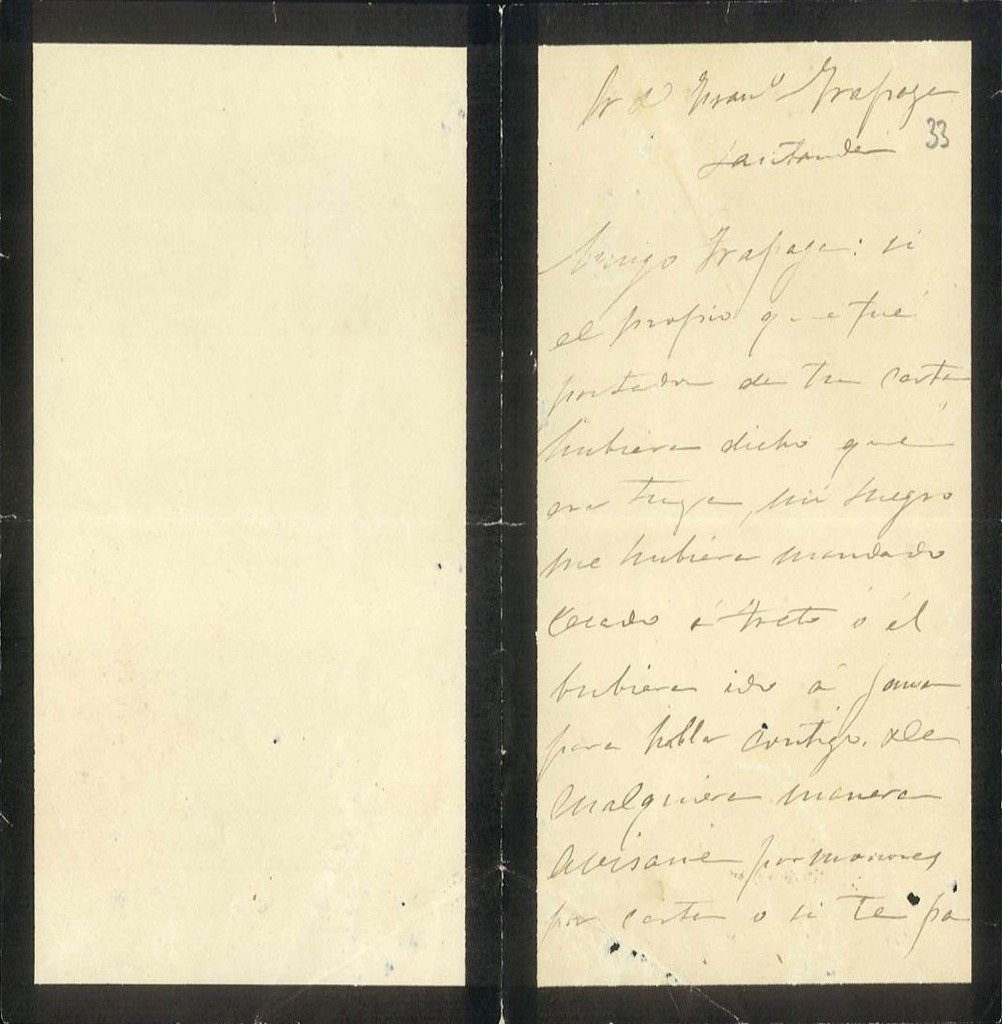 Sr d Franco Trapaga
Santander
33
Amigo Trapaga: si
el propio que fué
portador de tu carta
hubiera dicho que
era tuya, mi suegro
me hubiera mandado
recado á Treto ó él
hubiera ido á
para hablar contigo. De
cualquiera manera
avisame pormenores
por carta o si te pa